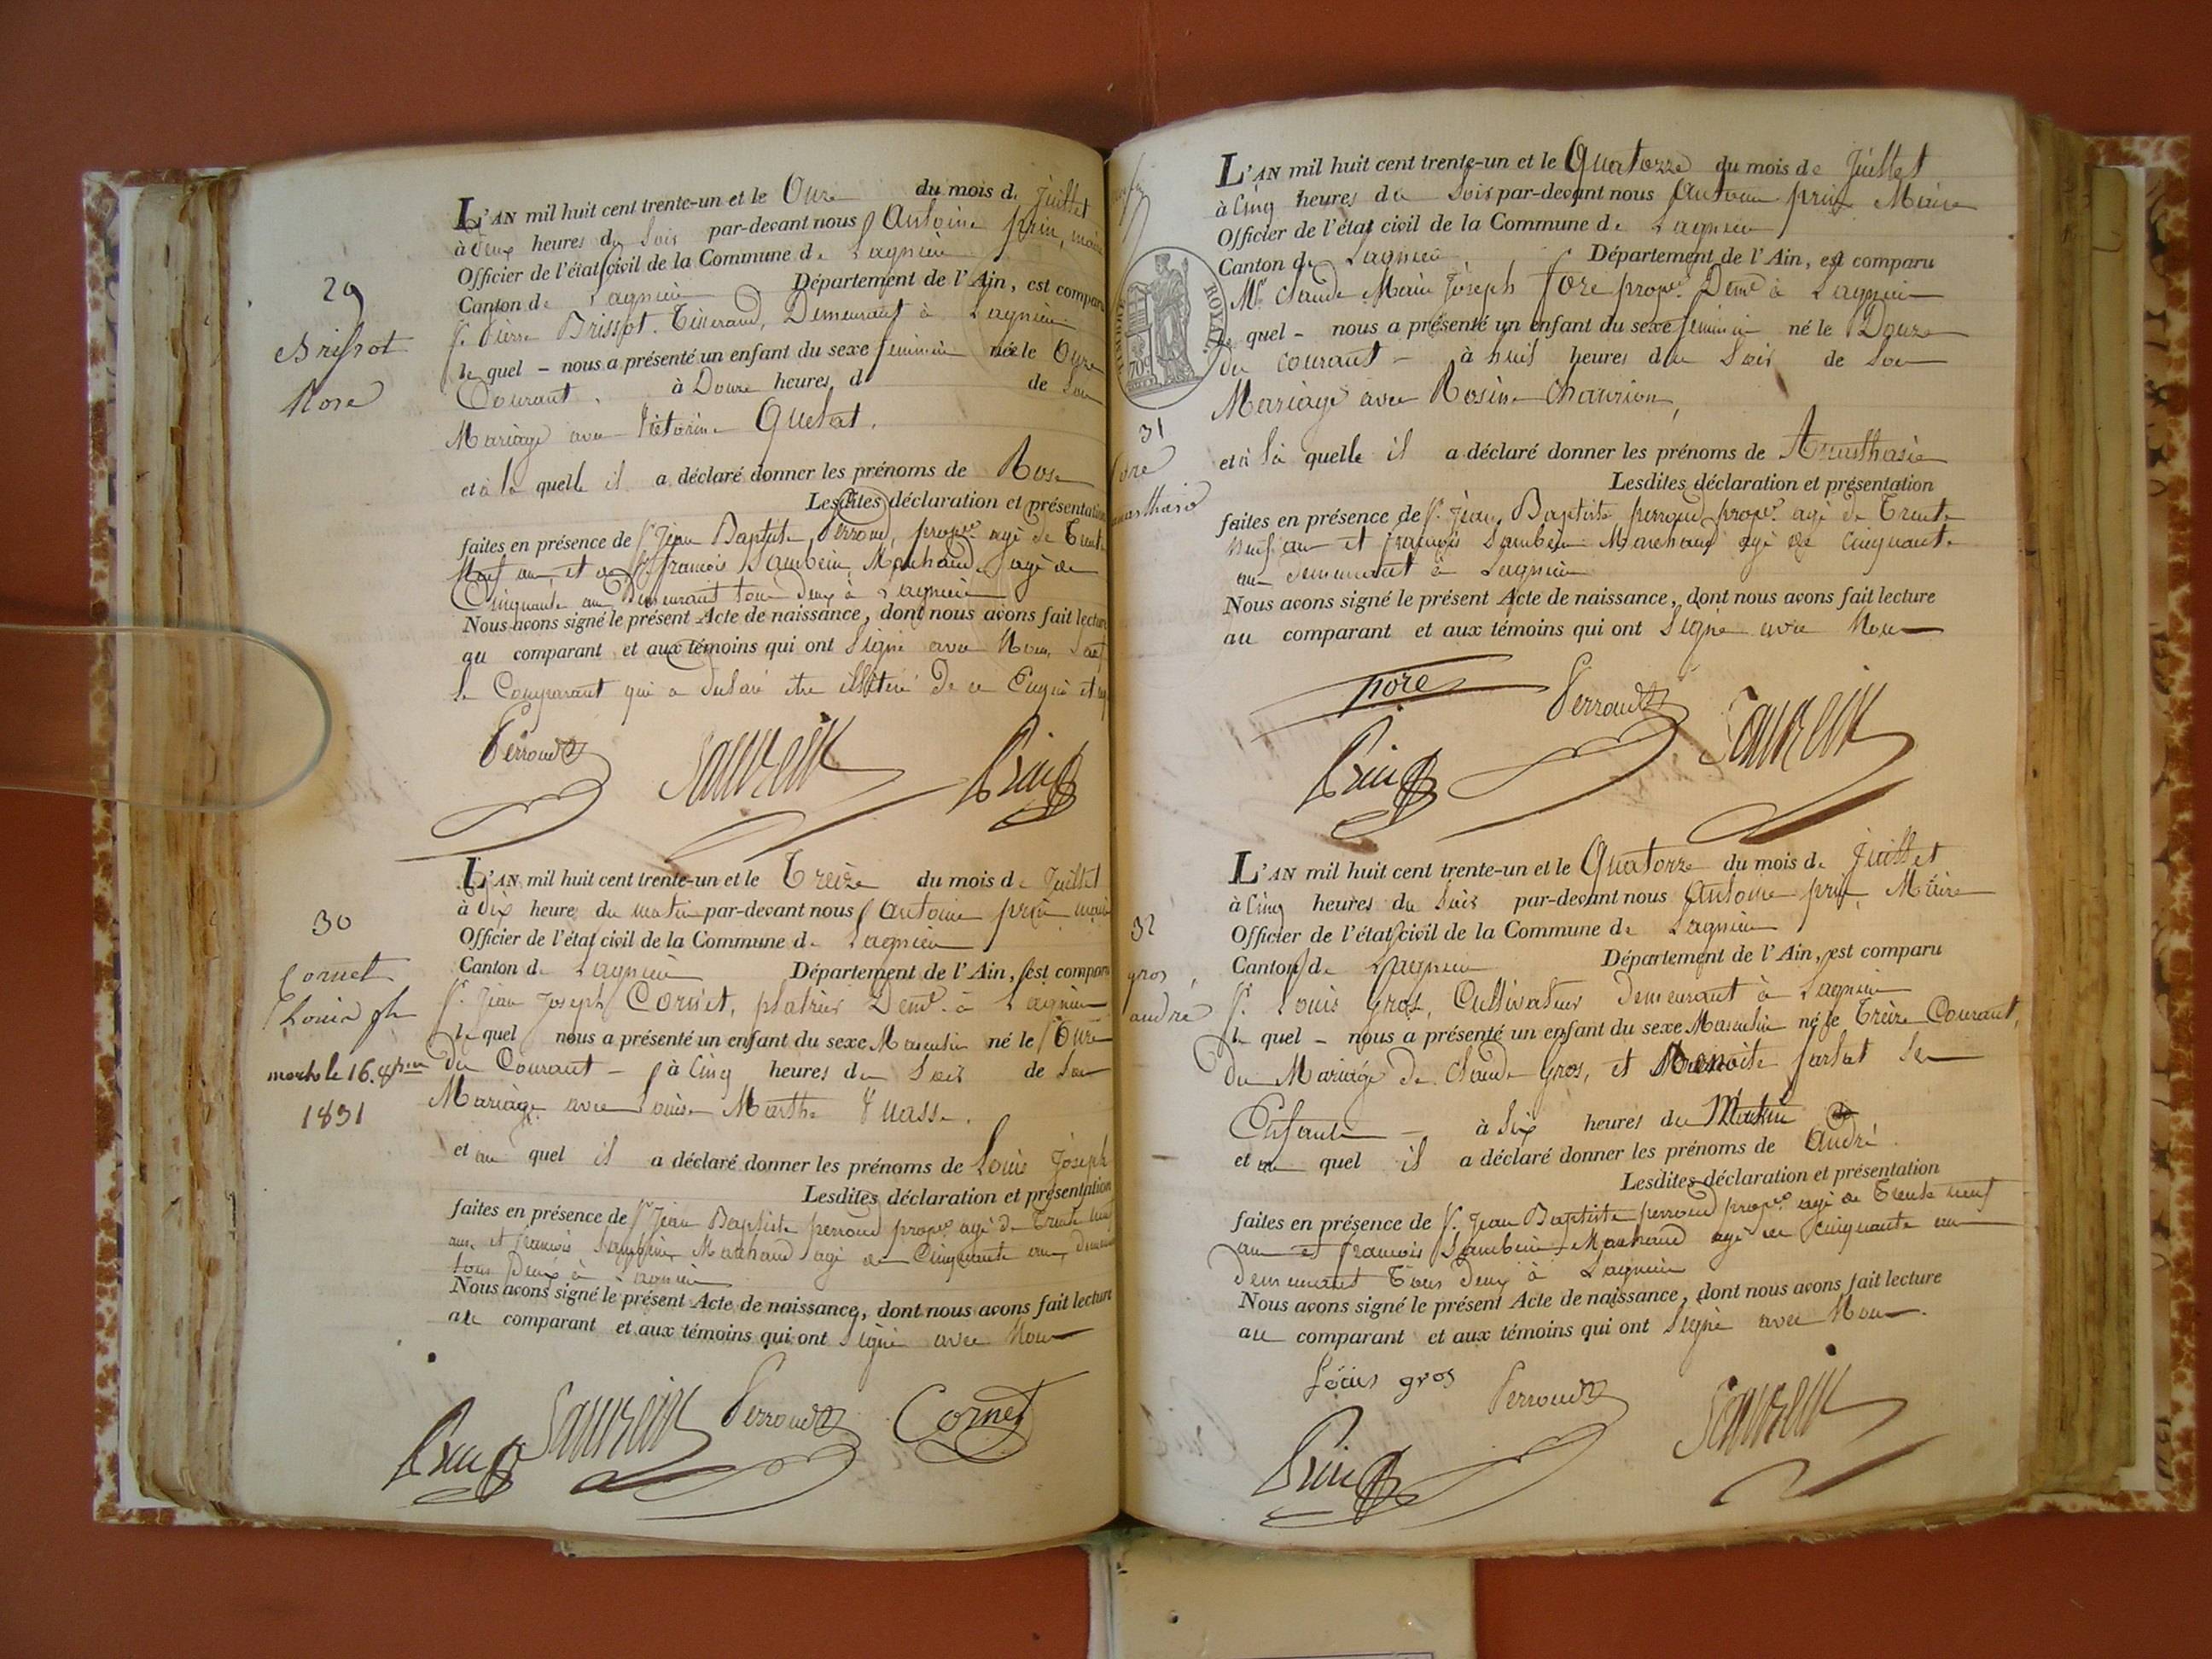 29
Brissot
Rose
L'AN mil huit cent trente-un et le Onze du mois de Juillet
à deux heures du soir par-devant nous Antoine prin, maire
Officier de l'état civil de la Commune de Lagnieu
Canton de Lagnieu Département de l'Ain, est comparu
Sr. Pierre Brissot. Tisserand, Demeurant à Lagnieu
le quel - nous a présenté un enfant du sexe feminin née le Onze
Courant. à Douze heures d de Son
Mariage avec Victorine Quetat.
et à la quelle il a déclaré donner les prénoms de Rose
Lesdites déclaration et présentation
faites en présence de Sr. Jean Baptiste Perroud, propre agé de Trente
Neuf ans, et de Sr. francois Saubein, Marchand agé de
Cinquante ans Demeurant tous deux à Lagnieu
Nous avons signé le présent Acte de naissance, dont nous avons fait lecture
au comparant et aux témoins qui ont Signé avec Nous, Sauf
le Comparant qui a declaré etre illiteré De ce Enquis et
Perroud
Prin
30
Cornet
Louis jh
mort le 16. 8bre
1831
L'AN mil huit cent trente-un et le Treize du mois de Juillet
à dix heure du matin par-devant nous Antoine prin maire
Officier de l'état civil de la Commune de Lagnieu
Canton de Lagnieu Département de l'Ain, est comparu
Sr. Jean Joseph Cornet, platrier Demt. à Lagnieu
le quel nous a présenté un enfant du sexe Masculin né le Onze
du Courant - à Cinq heures du Soir de Son
Mariage avec Louise Marthe
et au quel il a déclaré donner les prénoms de Louis Joseph
Lesdites déclaration et présentation
faites en présence de Sr. Jean Baptiste perroud propre agé de Trente neuf
ans, et francois Saubein Marchand agé de Cinquante ans, demeurant
tous Deux à Lagnieu
Nous avons signé le présent Acte de naissance, dont nous avons fait lecture
au comparant et aux témoins qui ont Signé avec Nous
Prin Perroud Cornet
TIMBRE ROYAL
70c
31
fore
L'AN mil huit cent trente-un et le Quatorze du mois de Juillet
à Cinq heures du Soir par-devant nous Antoine prin Maire
Officier de l'état civil de la Commune de Lagnieu
Canton de Lagnieu, Département de l'Ain, est comparu
Mr. Claude Marie Joseph fore propre. Demt à Lagnieu
le quel - nous a présenté un enfant du sexe feminin né le Douze
du courant - à huit heures du Soir de Son
Mariage avec Rosine
et à la quelle il a déclaré donner les prénoms de Anasthasie
Lesdites déclaration et présentation
faites en présence de Sr. Jean Baptiste perroud propre. agé de Trente
Neuf ans et francois Saubein Marchand agé de Cinquante
ans demeurant à Lagnieu
Nous avons signé le présent Acte de naissance, dont nous avons fait lecture
au comparant et aux témoins qui ont Signé avec Nous
fore Perroud
Prin
32
gros,
andré
L'AN mil huit cent trente-un et le Quatorze du mois de Juillet
à Cinq heures du Soir par-devant nous Antoine prin, Maire
Officier de l'état civil de la Commune de Lagnieu
Canton de Lagnieu Département de l'Ain, est comparu
Sr. Louis Gros, Cultivateur Demeurant à Lagnieu
le quel - nous a présenté un enfant du sexe Masculin né le Treize Courant,
du Mariage de Claude Gros, et Benoite
à Six heures du Matin
et au quel il a déclaré donner les prénoms de André.
Lesdites déclaration et présentation
faites en présence de Sr. Jean Baptiste perroud propre agé de Trente neuf
ans et francois Saubein Marchand agé de cinquante ans
demeurant Tous deux à Lagnieu
Nous avons signé le présent Acte de naissance, dont nous avons fait lecture
au comparant et aux témoins qui ont Signé avec Nous.
Louis gros Perroud
Prin